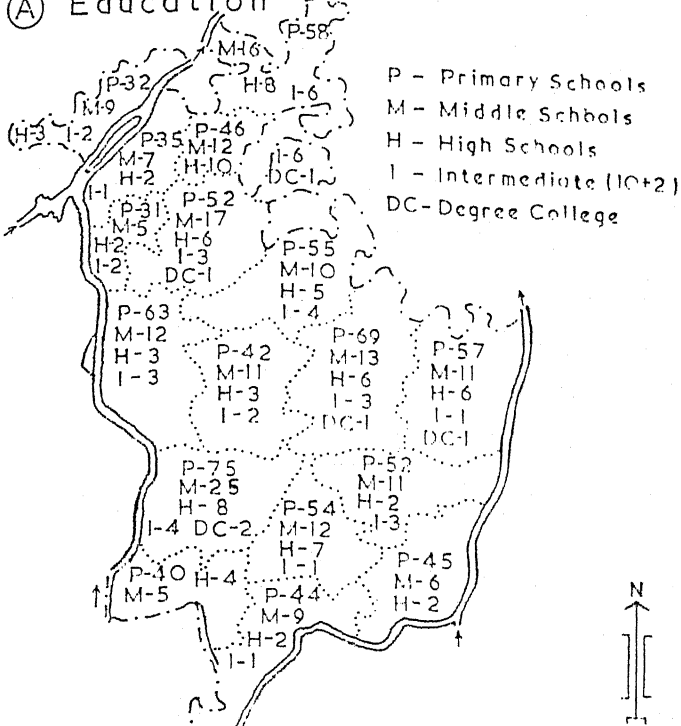 (A) Education
P-58
M-16
H-8
I-6
P-32
M-9
H-3 I-2
P-35
M-7
H-2
I-1
P-46
M-12
H-10
I-6
DC-1
P-31
M-5
H-2
I-2
P-52
M-17
H-6
I-3
DC-1
P-55
M-10
H-5
I-4
P-63
M-12
H-3
I-3
P-42
M-11
H-3
I-2
P-69
M-13
H-6
I-3
DC-1
P-57
M-11
H-6
I-1
DC-1
P-75
M-25
H-8
I-4 DC-2
P-52
M-11
H-2
I-3
P-54
M-12
H-7
I-1
P-40 H-4
M-5
P-44
M-9
H-2
I-1
P-45
M-6
H-2
P - Primary Schools
M - Middle Schools
H - High Schools
I - Intermediate (10+2)
DC-Degree College
N